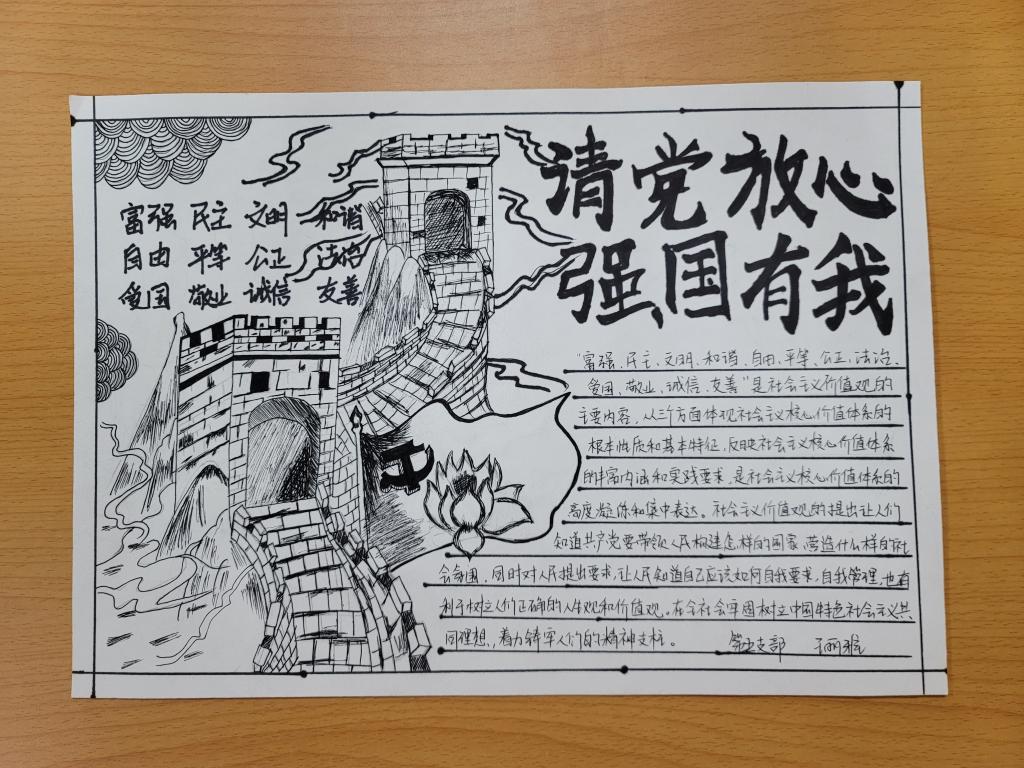 请党放心
强国有我
富强 民主 文明 和谐
自由 平等 公正 法治
爱国 敬业 诚信 友善
“富强、民主、文明、和谐、自由、平等、公正、法治、
爱国、敬业、诚信、友善”是社会主义价值观的
主要内容，从三个方面体现社会主义核心价值体系的
根本性质和基本特征，反映社会主义核心价值体系
的丰富内涵和实践要求，是社会主义核心价值体系的
高度凝练和集中表达。社会主义价值观的提出让人们
知道共产党要带领人民构建怎样的国家，营造什么样的社
会氛围，同时对人民提出要求，让人民知道自己应该如何自我要求，自我管理，也有
利于树立人们正确的人生观和价值观。在全社会牢固树立中国特色社会主义共
同理想，着力铸牢人们的精神支柱。
支部